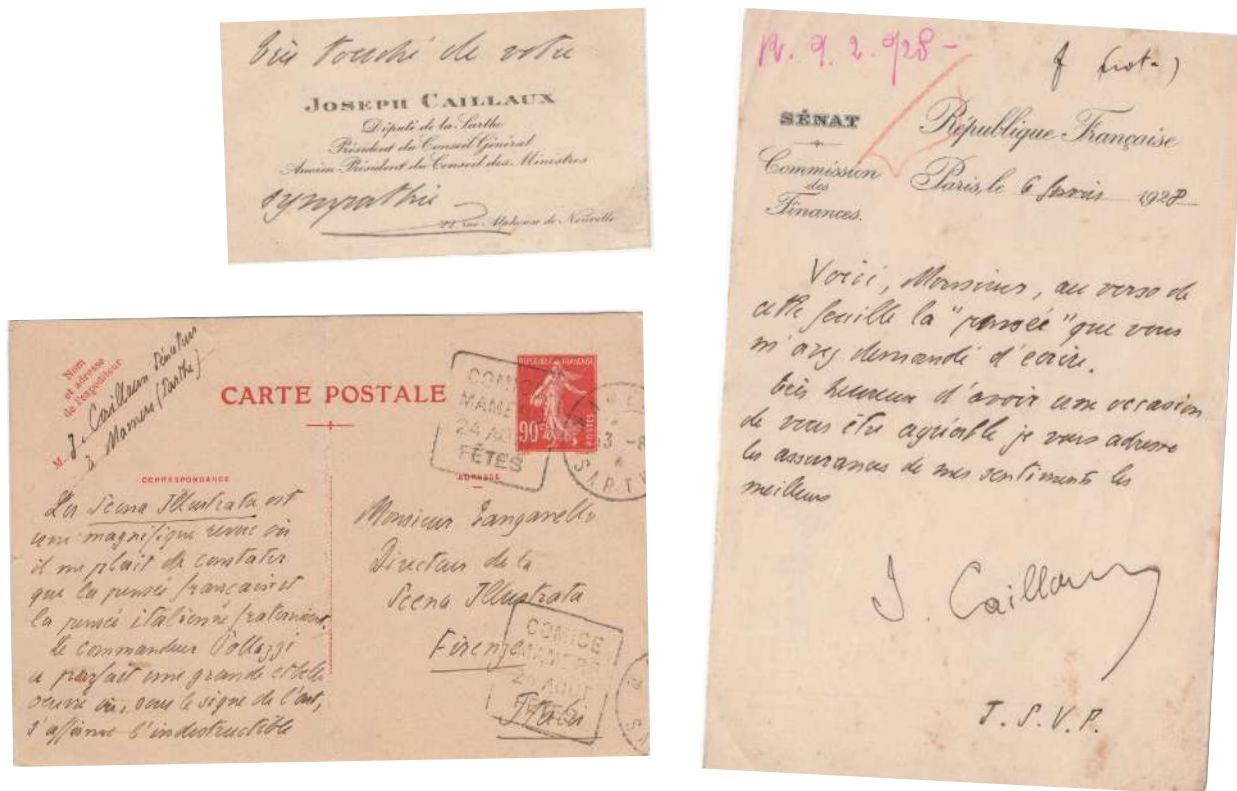 très touché de votre
JOSEPH CAILLAUX
Député de la Sarthe
Président du Conseil Général
Ancien Président du Conseil des Ministres
sympathie
22 rue Alphonse de Neuville
Nom
et adresse
de l'expéditeur
M. J. Caillaux Sénateur
à Mamers (Sarthe)
CARTE POSTALE
REPUBLIQUE FRANÇAISE
90c
POSTES
COMICE
MAMERS
24 AOUT
FÊTES
SARTHE
CORRESPONDANCE
La Scena Illustrata est
une magnifique revue où
il me plait de constater
que la pensée française et
la pensée italienne fraternisent.
Le commandeur Pollazzi
a parfait une grande et belle
oeuvre où, sous le signe de l'art,
s'affirme l'indestructible
ADRESSE
Monsieur
Directeur de la
Scena Illustrata
Firenze
Italie
COMICE
MAMERS
24 AOUT
FÊTES
R. 9. 2. 928-
SÉNAT
Commission
des
Finances.
République Française
Paris, le 6 février 1928
Voici, Monsieur, au verso de
cette feuille la "pensée" que vous
m'avez demandé d'écrire.
Très heureux d'avoir une occasion
de vous être agréable je vous adresse
les assurances de mes sentiments les
meilleurs
J. Caillaux
T.S.V.P.